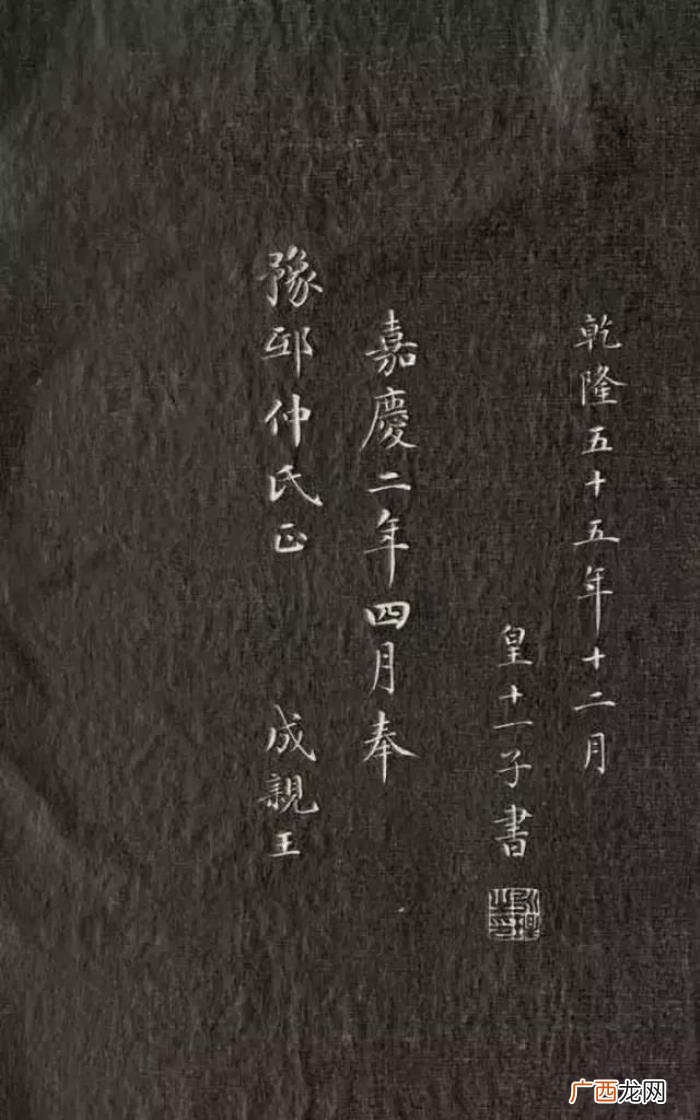 乾隆五十五年十二月
皇十一子書
嘉慶二年四月奉
豫邸仲氏正 成親王
广西龙网